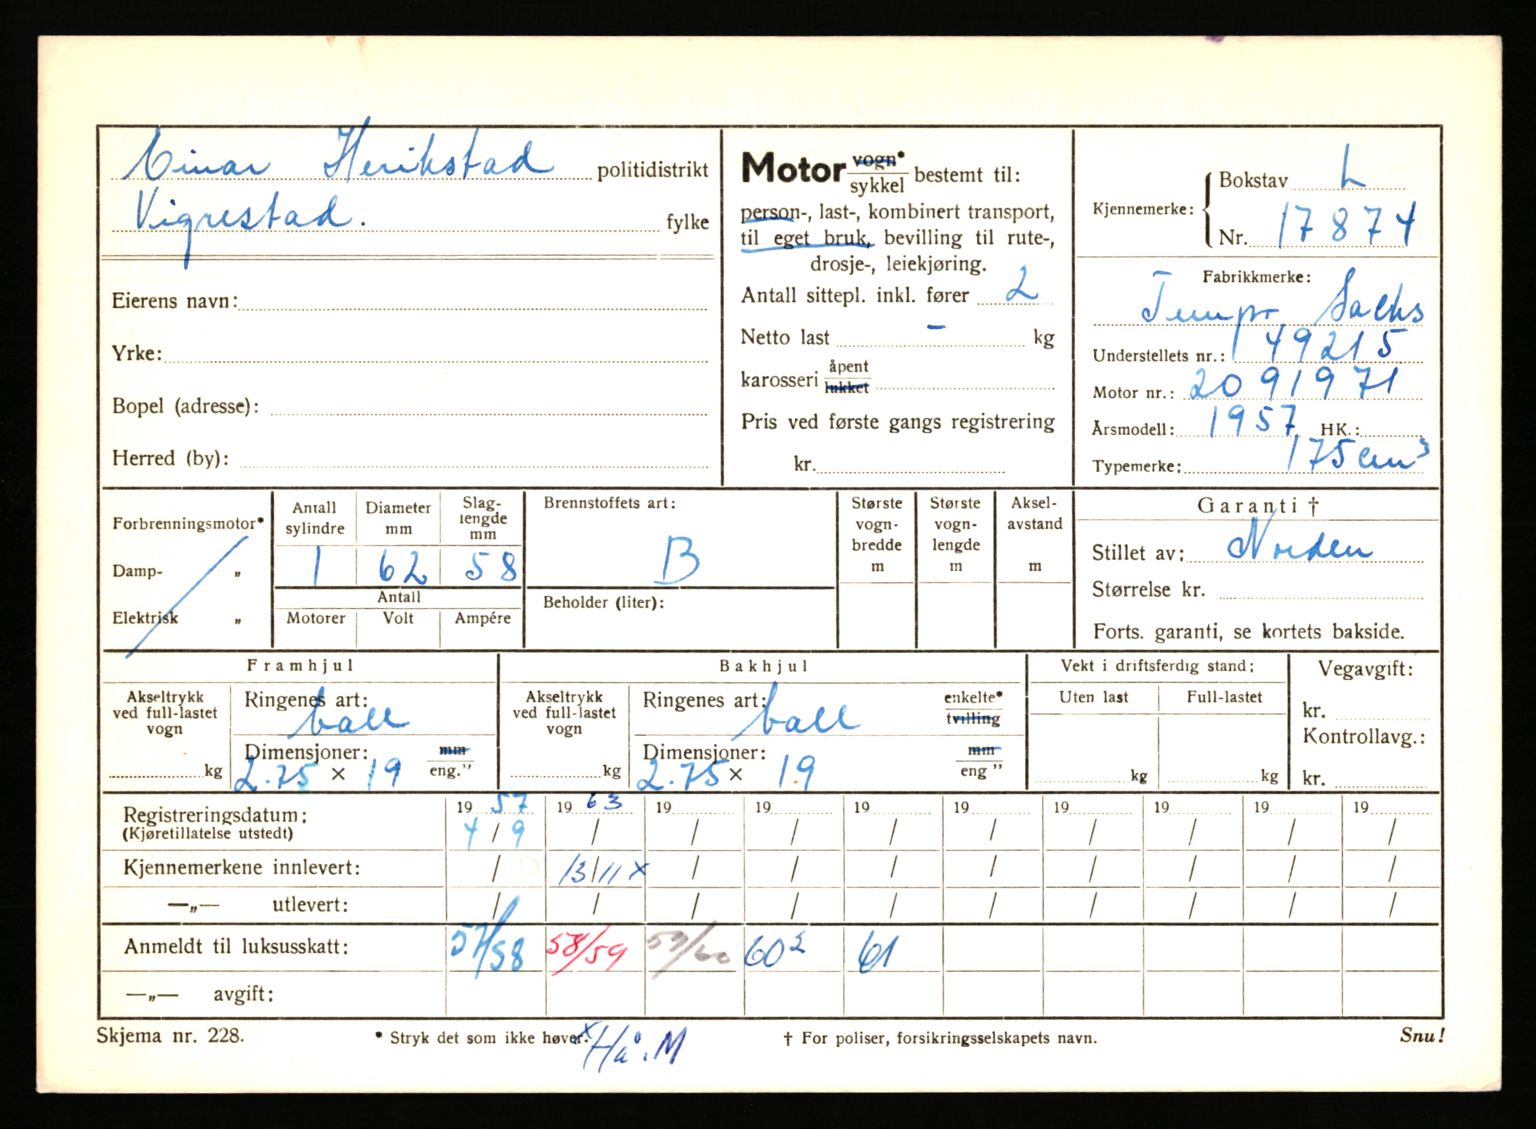 Einar Herikstad politidistrikt
Vigrestad. fylke
Eierens navn:
Yrke:
Bopel (adresse):
Herred (by):
Motor vogn* / sykkel bestemt til:
person-, last-, kombinert transport,
til eget bruk, bevilling til rute-,
drosje-, leiekjøring.
Antall sittepl. inkl. fører 2
Netto last - kg
karosseri åpent / lukket
Pris ved første gangs registrering
kr.
Kjennemerke: Bokstav L
Nr. 17874
Fabrikkmerke:
Tempo Sachs
Understellets nr.: 149215
Motor nr.: 2091971
Årsmodell: 1957 HK.:
Typemerke: 175 cm³
Forbrenningsmotor*
Damp- „
Elektrisk „
Antall sylindre 1
Diameter mm 62
Slaglengde mm 58
Antall
Motorer Volt Ampére
Brennstoffets art:
B
Beholder (liter):
Største vognbredde m
Største vognlengde m
Akselavstand m
Garanti †
Stillet av: Norden
Størrelse kr.
Forts. garanti, se kortets bakside.
Framhjul
Akseltrykk ved full-lastet vogn
kg
Ringenes art: ball
Dimensjoner: mm
2.75 × 19 eng.”
Bakhjul
Akseltrykk ved full-lastet vogn
kg
Ringenes art: ball enkelte* / tvilling
Dimensjoner: mm
2.75 × 19 eng ”
Vekt i driftsferdig stand:
Uten last Full-lastet
kg kg
Vegavgift:
kr.
Kontrollavg.:
kr.
Registreringsdatum: 19 57 19 63 19 19 19 19 19 19 19 19
(Kjøretillatelse utstedt) 4 / 9 / / / / / / / / /
Kjennemerkene innlevert: / 13/11 x / / / / / / / /
—„— utlevert: / / / / / / / / / /
Anmeldt til luksusskatt: 57/58 58/59 59/60 60² 61
—„— avgift:
Skjema nr. 228. * Stryk det som ikke høver. † For poliser, forsikringsselskapets navn. Snu!
x Hå.M